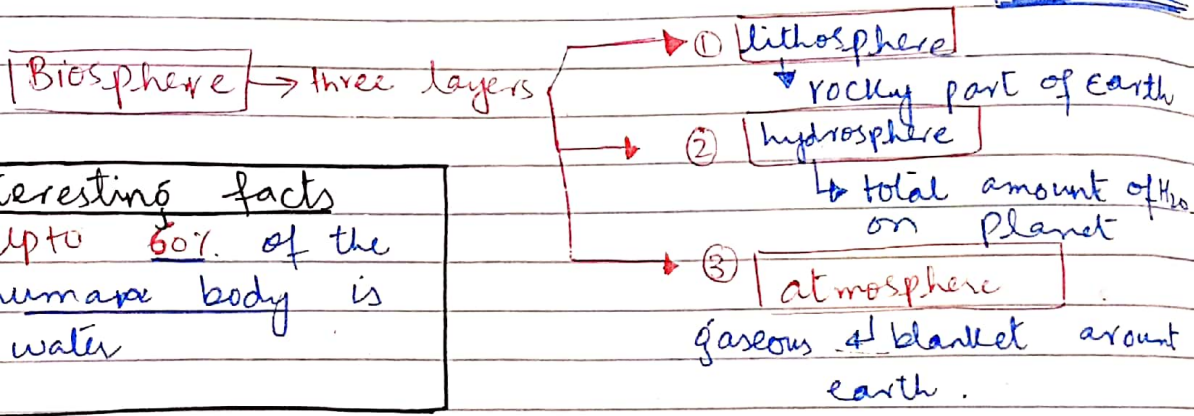 Biosphere → three layers
① lithosphere
rocky part of Earth
② hydrosphere
↳ total amount of H₂O
on planet
③ atmosphere
gaseous blanket arount
earth.
teresting facts
upto 60% of the
umane body is
water